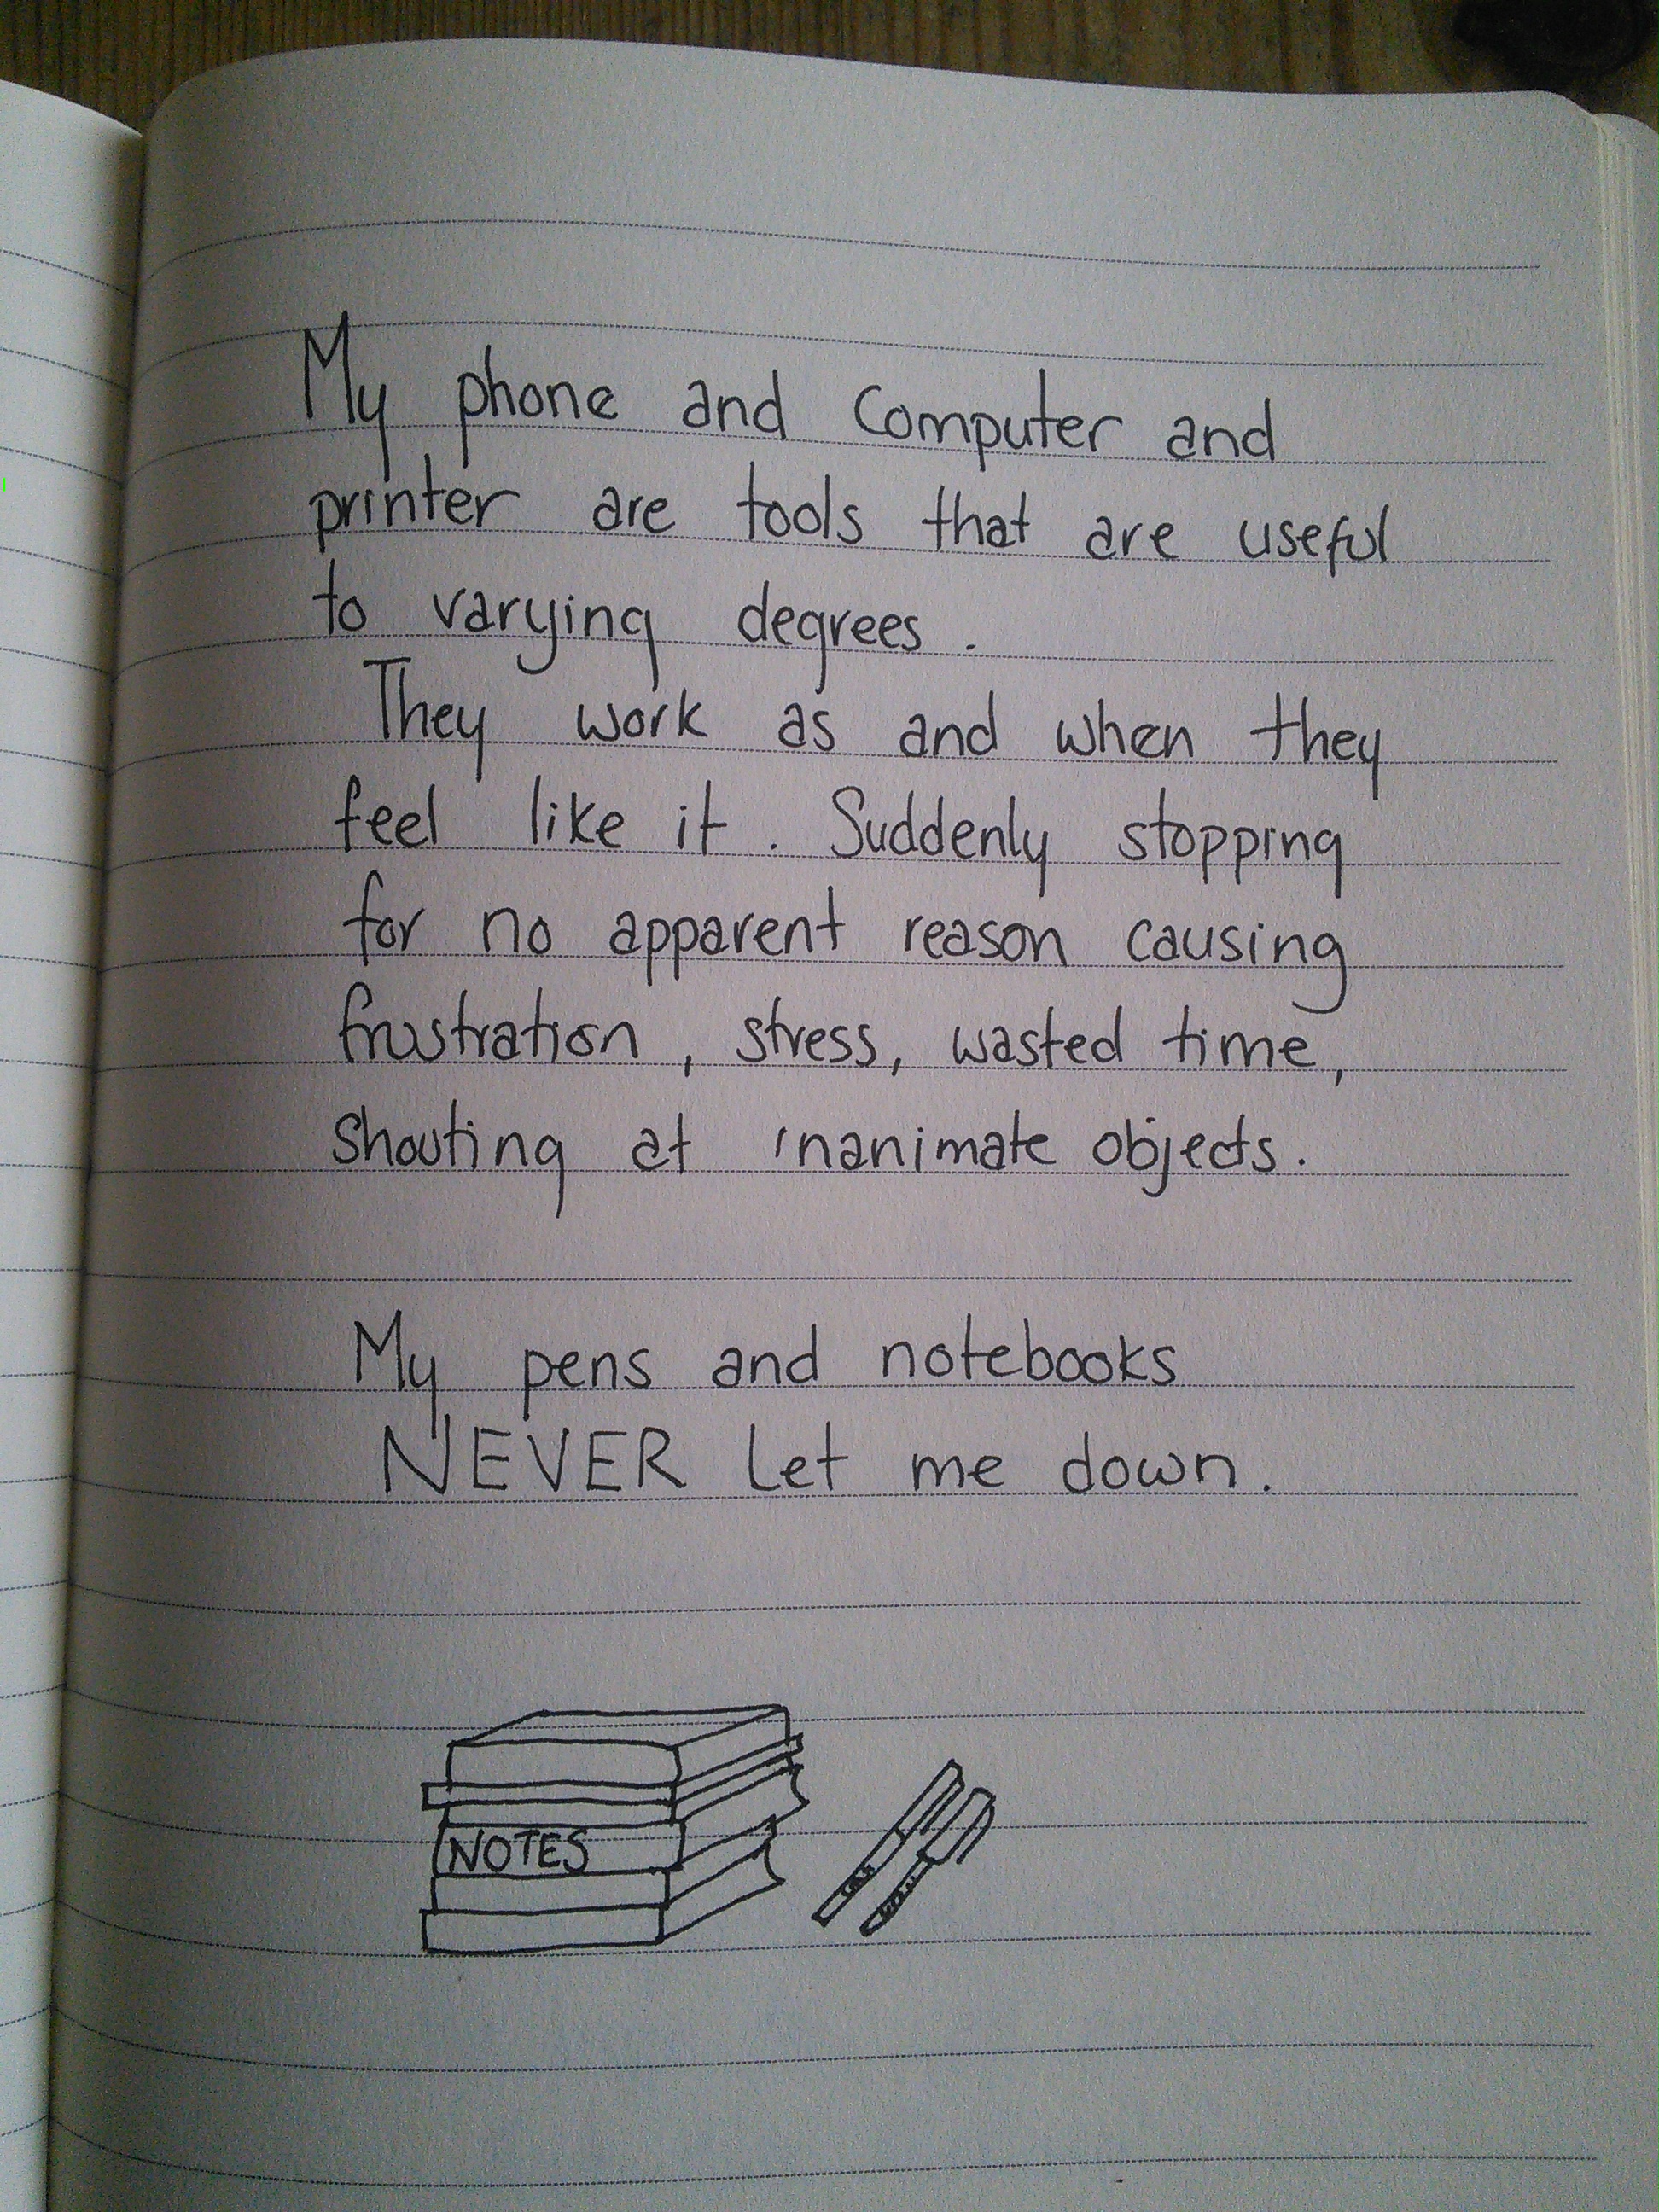 My phone and computer and
printer are tools that are useful
to varying degrees.
They work as and when they
feel like it. Suddenly stopping
for no apparent reason causing
frustration, stress, wasted time,
shouting at inanimate objects.
My pens and notebooks
NEVER let me down.
NOTES